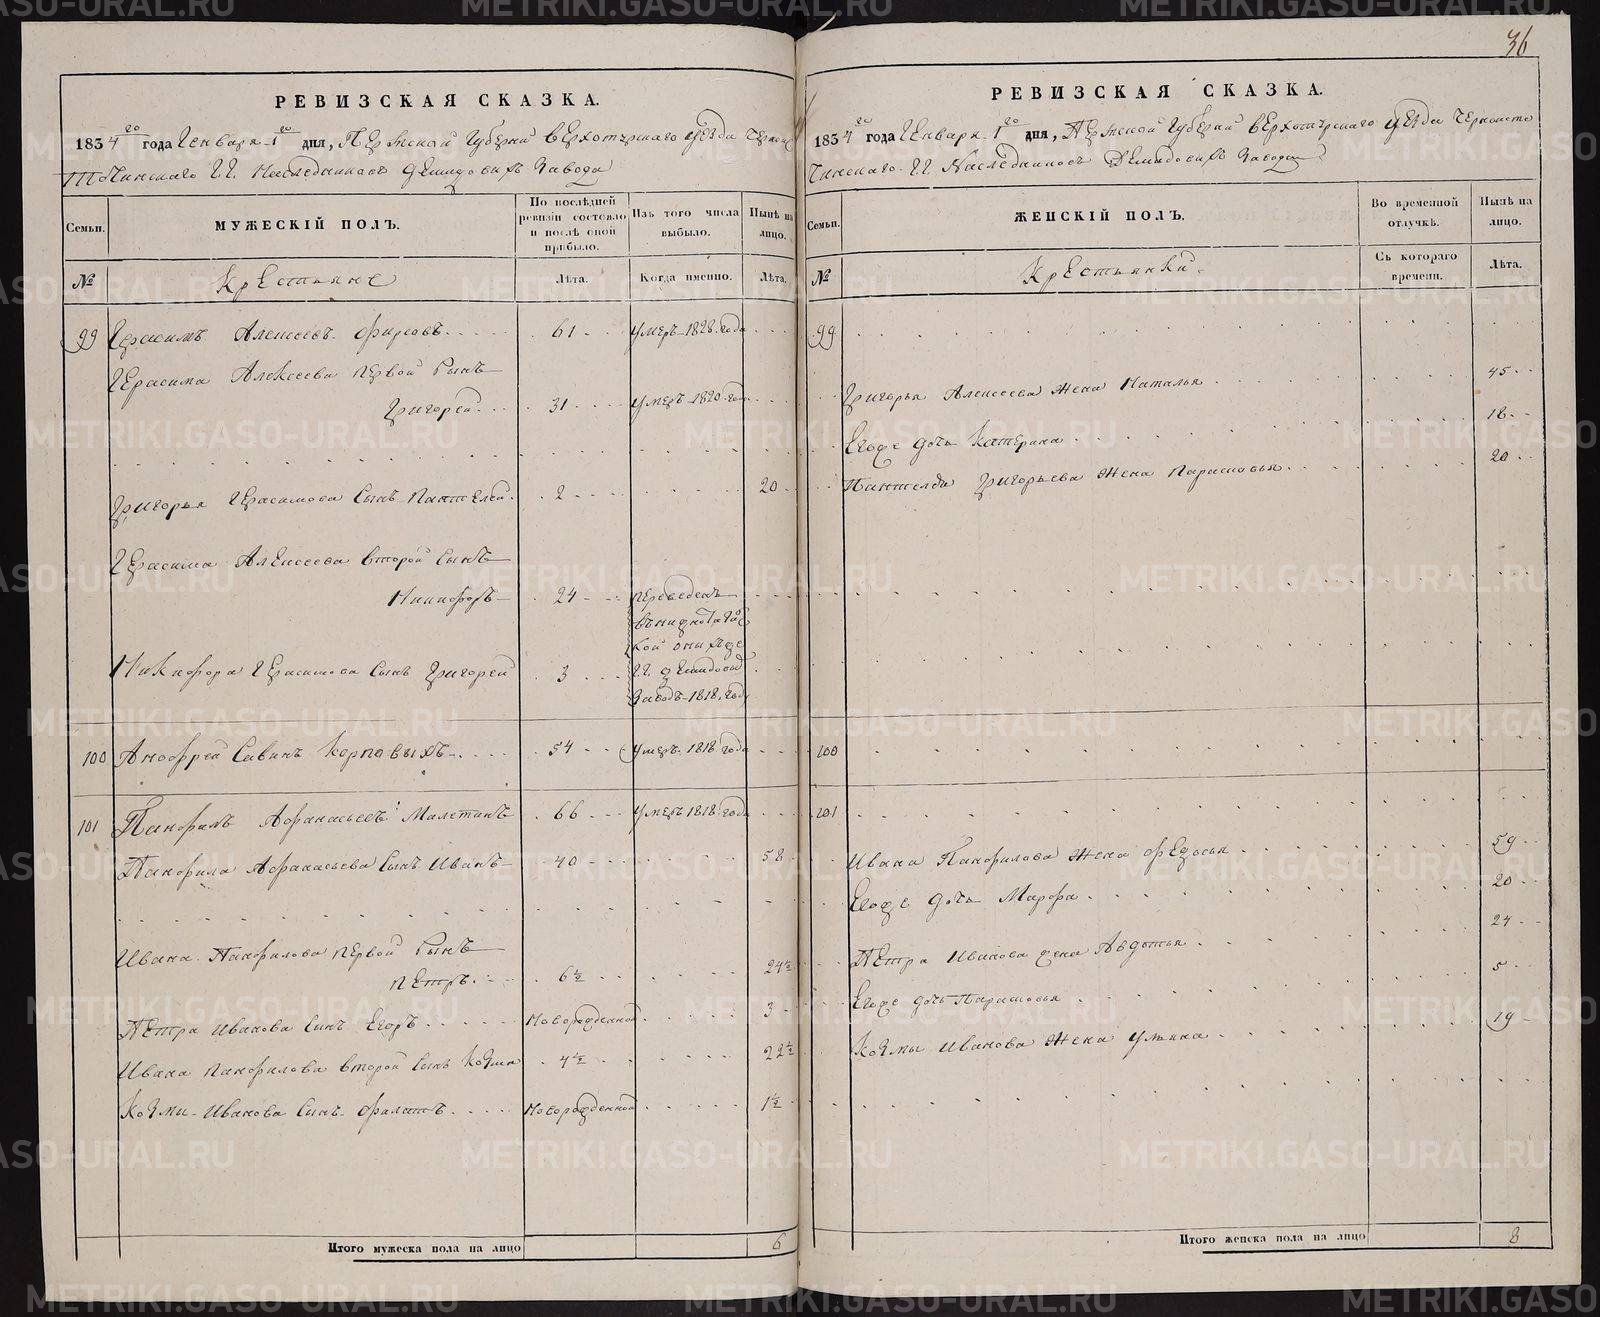 36
РЕВИЗСКАЯ СКАЗКА.
1834го года Генваря 1го дня, Пермской Губернии Верхотурскаго уезда Черноис
точинскаго ГГ. Наследниковъ Демидовыхъ Завода
Семьи. МУЖЕСКІЙ ПОЛЪ. По послѣдней ревизіи состояло и послѣ оной прибыло. Изъ того числа выбыло. Нынѣ на лицо.
№ Крестьяне Лѣта. Когда именно. Лѣта.
99 Герасимъ Алексеевъ Фирсовъ 61 умеръ 1828 года
Герасима Алексеева первой сынъ
Григорей 31 умеръ 1820 года
Григорья Герасимова сынъ Пантелей 2 20
Герасима Алексеева второй сынъ
Никифоръ 24 переведенъ
въ нижнотагил
кой онихже
Никифора Герасимова сынъ Григорей 3 ГГ. Демидовых
заводъ 1818 году
100 Анофрей Савинъ Карповыхъ 54 умеръ 1818 года
101 Панфилъ Афанасьевъ Малетинъ 66 умеръ 1818 года
Панфила Афанасьева сынъ Иванъ 40 58
Ивана Панфилова первой сынъ
Петръ 6½ 24½
Петра Иванова сынъ Егоръ Новорожденной 3
Ивана Панфилова второй сынъ Козма 4½ 22½
Козмы Иванова сынъ Филатъ Новорожденной 1½
Итого мужеска пола на лицо 6
РЕВИЗСКАЯ СКАЗКА.
1834го года Генваря 1го дня, Пермской Губернии Верхотурскаго уезда Черноисто
чинскаго ГГ. Наследниковъ Демидовыхъ Завода
Семьи. ЖЕНСКІЙ ПОЛЪ. Во временной отлучкѣ. Нынѣ на лицо.
№ Крестьянки. Съ котораго времени. Лѣта.
99
Григорья Алексеева жена Наталья 45
Егоже дочь Катерина 18
Пантелея Григорьева жена Парасковья 20
100
101
Ивана Панфилова жена Федосья 59
Егоже дочь Марфа 20
Петра Иванова жена Авдотья 24
Егоже дочь Парасковья 5
Козмы Иванова жена Ульяна 19
Итого женска пола на лицо 8
METRIKI.GASO-URAL.RU